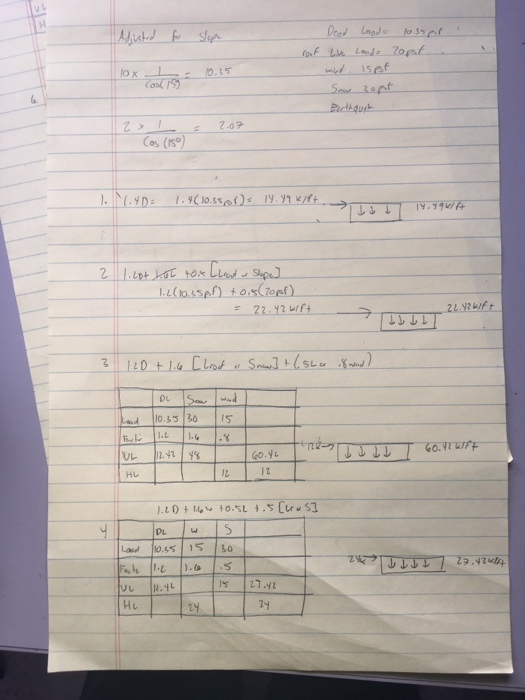 VL
H
Adjusted for Slope
Dead Loads 10.35psf
roof Live Loads 20psf
10 x 1/cos(15°) = 10.35
wind 15psf
Snow 30psf
Earthquak
2 x 1/Cos(15°) = 2.07
1. 1.4D = 1.4(10.35psf) = 14.49 k/ft → ↓ ↓ ↓ 14.49k/ft
2 1.2D+ +0.5 [Lroof or Slope]
1.2(10.35psf) + 0.5(20psf)
= 22.42 k/ft → ↓ ↓ ↓ ↓ 22.42k/ft
3 1.2D + 1.6 [Lroof or Snow] + (.5L or .8wind)
DL Snow wind
Load 10.35 30 15
Fact 1.2 1.6 .8
VL 12.42 48 60.42
12k→ ↓ ↓ ↓ ↓ 60.42 k/ft
HL 12 12
1.2D + 1.6w +0.5L +.5 [Lr or S]
4 DL W S
Load 10.35 15 30
Fact 1.2 1.6 .5
24k→ ↓ ↓ ↓ ↓ 27.42k/ft
VL 12.42 15 27.42
HL 24 24